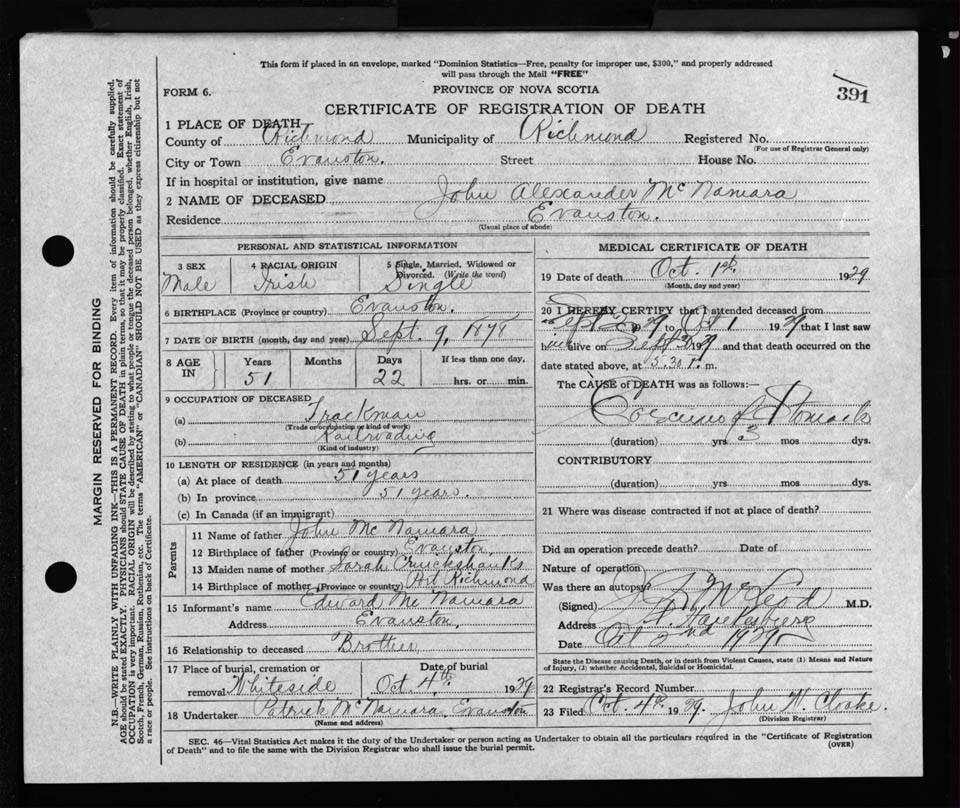 This form if placed in an envelope, marked "Dominion Statistics—Free, penalty for improper use, $300," and properly addressed
will pass through the Mail "FREE"
FORM 6.
PROVINCE OF NOVA SCOTIA
391
CERTIFICATE OF REGISTRATION OF DEATH
1 PLACE OF DEATH
County of Richmond Municipality of Richmond Registered No.
(For use of Registrar General only)
City or Town Evanston. Street House No.
If in hospital or institution, give name
2 NAME OF DECEASED John Alexander McNamara
Residence Evanston.
(Usual place of abode)
PERSONAL AND STATISTICAL INFORMATION
3 SEX 4 RACIAL ORIGIN 5 Single, Married, Widowed or
Divorced. (Write the word)
Male Irish Single
6 BIRTHPLACE (Province or country) Evanston.
7 DATE OF BIRTH (month, day and year) Sept. 9, 1878
8 AGE IN Years Months Days If less than one day,
51 22 hrs. or min.
9 OCCUPATION OF DECEASED
(a) Trackman
(Trade or occupation or kind of work)
(b) Railroading
(Kind of industry)
10 LENGTH OF RESIDENCE (in years and months)
(a) At place of death 51 years
(b) In province 51 years.
(c) In Canada (if an immigrant)
Parents
11 Name of father John McNamara
12 Birthplace of father (Province or country) Evanston,
13 Maiden name of mother Sarah Cruickshanks
14 Birthplace of mother (Province or country) Port Richmond
15 Informant's name Edward McNamara
Address Evanston,
16 Relationship to deceased Brother
17 Place of burial, cremation or Date of burial
removal Whiteside Oct. 4th 1929
18 Undertaker Patrick McNamara, Evanston
(Name and address)
MEDICAL CERTIFICATE OF DEATH
19 Date of death Oct. 1st. 1929
(Month, day and year)
20 I HEREBY CERTIFY that I attended deceased from
Sept 2 1929 to Oct 1 1929 that I last saw
him alive on Sept 1929 and that death occurred on the
date stated above, at 5.30 m.
The CAUSE of DEATH was as follows:—
Carcinoma of Stomach
(duration) yrs 3 mos dys.
CONTRIBUTORY
(duration) yrs mos dys.
21 Where was disease contracted if not at place of death?
Did an operation precede death? Date of
Nature of operation
Was there an autopsy?
(Signed) McLeod M.D.
Address Hawkesbury
Date Oct 2nd 1929
State the Disease causing Death, or in death from Violent Causes, state (1) Means and Nature
of Injury, (2) whether Accidental, Suicidal or Homicidal.
22 Registrar's Record Number
23 Filed Oct. 4th 1929. John H. Cloake.
(Division Registrar)
SEC. 46—Vital Statistics Act makes it the duty of the Undertaker or person acting as Undertaker to obtain all the particulars required in the "Certificate of Registration
of Death" and to file the same with the Division Registrar who shall issue the burial permit.
(OVER)
MARGIN RESERVED FOR BINDING
N.B.—WRITE PLAINLY WITH UNFADING INK—THIS IS A PERMANENT RECORD. Every item of information should be carefully supplied.
AGE should be stated EXACTLY. PHYSICIANS should STATE CAUSE OF DEATH in plain terms, so that it may be properly classified. Exact statement of
OCCUPATION is very important. RACIAL ORIGIN will be described by stating to what people or tongue the deceased person belonged, whether English, Irish,
Scotch, French, German, Russian, Ruthenian, etc. The terms "AMERICAN" or "CANADIAN" SHOULD NOT BE USED as they express citizenship but not
a race or people. See instructions on back of Certificate.